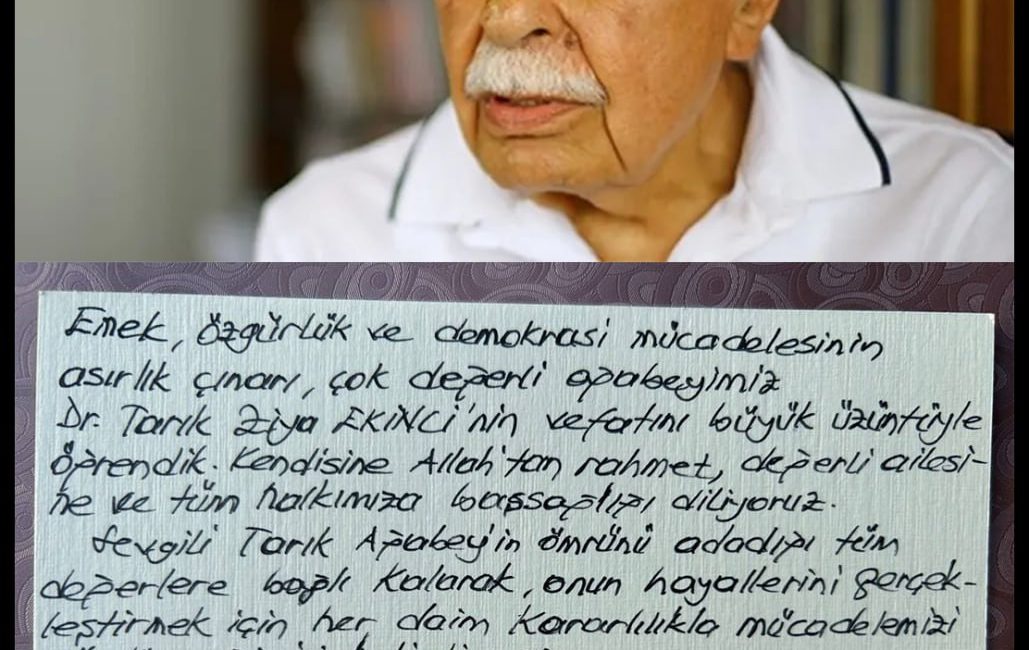 Emek, özgürlük ve demokrasi mücadelesinin
asırlık çınarı, çok değerli ağabeyimiz
Dr. Tarık Ziya EKİNCİ'nin vefatını büyük üzüntüyle
öğrendik. Kendisine Allah'tan rahmet, değerli ailesi-
ne ve tüm halkımıza başsağlığı diliyoruz.
Sevgili Tarık Ağabey'in ömrünü adadığı tüm
değerlere bağlı kalarak, onun hayallerini gerçek-
leştirmek için her daim kararlılıkla mücadelemizi